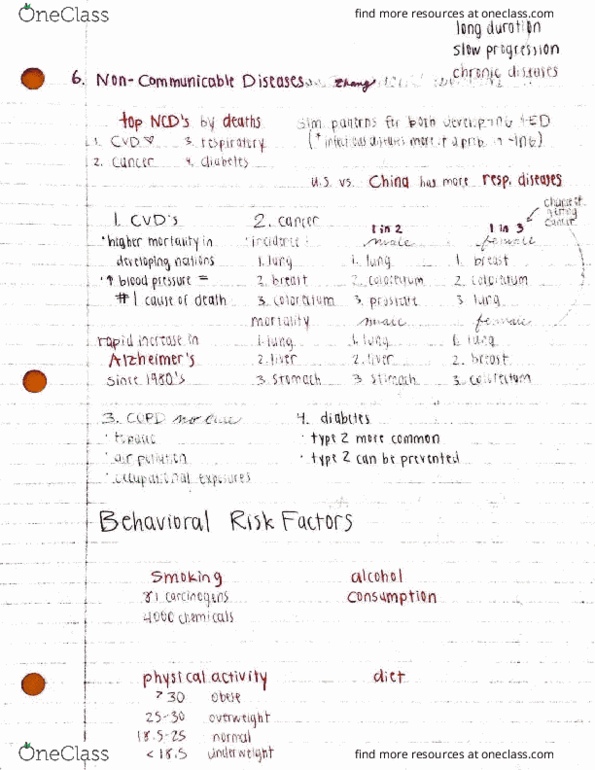 OneClass
find more resources at oneclass.com
long duration
slow progression
chronic diseases
6. Non-Communicable Diseases
Zhang
top NCD's by deaths
1. CVD ♡ 3. respiratory
2. cancer 4. diabetes
sim. patterns for both developing + ED
(* infectious diseases more of a prob. in -ing)
U.S. vs. China has more resp. diseases
1. CVD's
· higher mortality in
developing nations
· ↑ blood pressure =
#1 cause of death
rapid increase in
Alzheimer's
since 1980's
2. cancer
incidence:
1. lung
2. breast
3. colorectum
mortality
1. lung
2. liver
3. stomach
1 in 2
male
1. lung
2. colorectum
3. prostate
male
1. lung
2. liver
3. stomach
1 in 3
female
1. breast
2. colorectum
3. lung
female
1. lung
2. breast
3. colorectum
cancer
3. COPD no cure
· air pollution
· occupational exposures
4. diabetes
· type 2 more common
· type 2 can be prevented
Behavioral Risk Factors
smoking
81 carcinogens
4000 chemicals
alcohol
consumption
physical activity
>30 obese
25-30 overweight
18.5-25 normal
<18.5 underweight
diet
OneClass
find more resources at oneclass.com